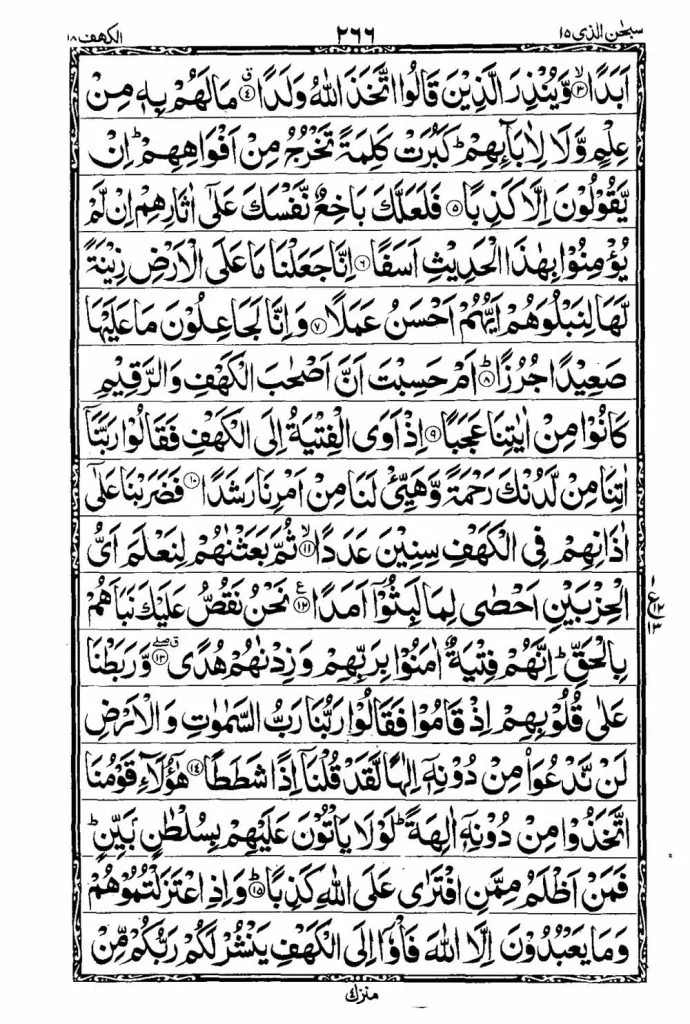 سبحٰن الذی ١٥ ٢٦٦ الكهف ١٨
اَبَدًا ۙ﴿٣﴾ وَّيُنْذِرَ الَّذِيْنَ قَالُوا اتَّخَذَ اللّٰهُ وَلَدًا ۗ﴿٤﴾ مَا لَهُمْ بِهٖ مِنْ
عِلْمٍ وَّلَا لِاٰبَآئِهِمْ ؕ كَبُرَتْ كَلِمَةً تَخْرُجُ مِنْ اَفْوَاهِهِمْ ؕ اِنْ
يَّقُوْلُوْنَ اِلَّا كَذِبًا ﴿٥﴾ فَلَعَلَّكَ بَاخِعٌ نَّفْسَكَ عَلٰٓى اٰثَارِهِمْ اِنْ لَّمْ
يُؤْمِنُوْا بِهٰذَا الْحَدِيْثِ اَسَفًا ﴿٦﴾ اِنَّا جَعَلْنَا مَا عَلَى الْاَرْضِ زِيْنَةً
لَّهَا لِنَبْلُوَهُمْ اَيُّهُمْ اَحْسَنُ عَمَلًا ﴿٧﴾ وَاِنَّا لَجَاعِلُوْنَ مَا عَلَيْهَا
صَعِيْدًا جُرُزًا ؕ﴿٨﴾ اَمْ حَسِبْتَ اَنَّ اَصْحٰبَ الْكَهْفِ وَالرَّقِيْمِ
كَانُوْا مِنْ اٰيٰتِنَا عَجَبًا ﴿٩﴾ اِذْ اَوَى الْفِتْيَةُ اِلَى الْكَهْفِ فَقَالُوْا رَبَّنَآ
اٰتِنَا مِنْ لَّدُنْكَ رَحْمَةً وَّهَيِّئْ لَنَا مِنْ اَمْرِنَا رَشَدًا ﴿١٠﴾ فَضَرَبْنَا عَلٰٓى
اٰذَانِهِمْ فِى الْكَهْفِ سِنِيْنَ عَدَدًا ۙ﴿١١﴾ ثُمَّ بَعَثْنٰهُمْ لِنَعْلَمَ اَىُّ
الْحِزْبَيْنِ اَحْصٰى لِمَا لَبِثُوْٓا اَمَدًا ﴿١٢﴾ ع نَحْنُ نَقُصُّ عَلَيْكَ نَبَاَهُمْ
١ ع ١٢ ١٣
بِالْحَقِّ ؕ اِنَّهُمْ فِتْيَةٌ اٰمَنُوْا بِرَبِّهِمْ وَزِدْنٰهُمْ هُدًى ۖق ﴿١٣﴾ وَّرَبَطْنَا
عَلٰى قُلُوْبِهِمْ اِذْ قَامُوْا فَقَالُوْا رَبُّنَا رَبُّ السَّمٰوٰتِ وَالْاَرْضِ
لَنْ نَّدْعُوَا۟ مِنْ دُوْنِهٖٓ اِلٰهًا لَّقَدْ قُلْنَآ اِذًا شَطَطًا ﴿١٤﴾ هٰٓؤُلَآءِ قَوْمُنَا
اتَّخَذُوْا مِنْ دُوْنِهٖٓ اٰلِهَةً ؕ لَوْلَا يَاْتُوْنَ عَلَيْهِمْ بِسُلْطٰنٍۭ بَيِّنٍ ؕ
فَمَنْ اَظْلَمُ مِمَّنِ افْتَرٰى عَلَى اللّٰهِ كَذِبًا ؕ﴿١٥﴾ وَاِذِ اعْتَزَلْتُمُوْهُمْ
وَمَا يَعْبُدُوْنَ اِلَّا اللّٰهَ فَاْوٗٓا اِلَى الْكَهْفِ يَنْشُرْ لَكُمْ رَبُّكُمْ مِّنْ
منزل ٤